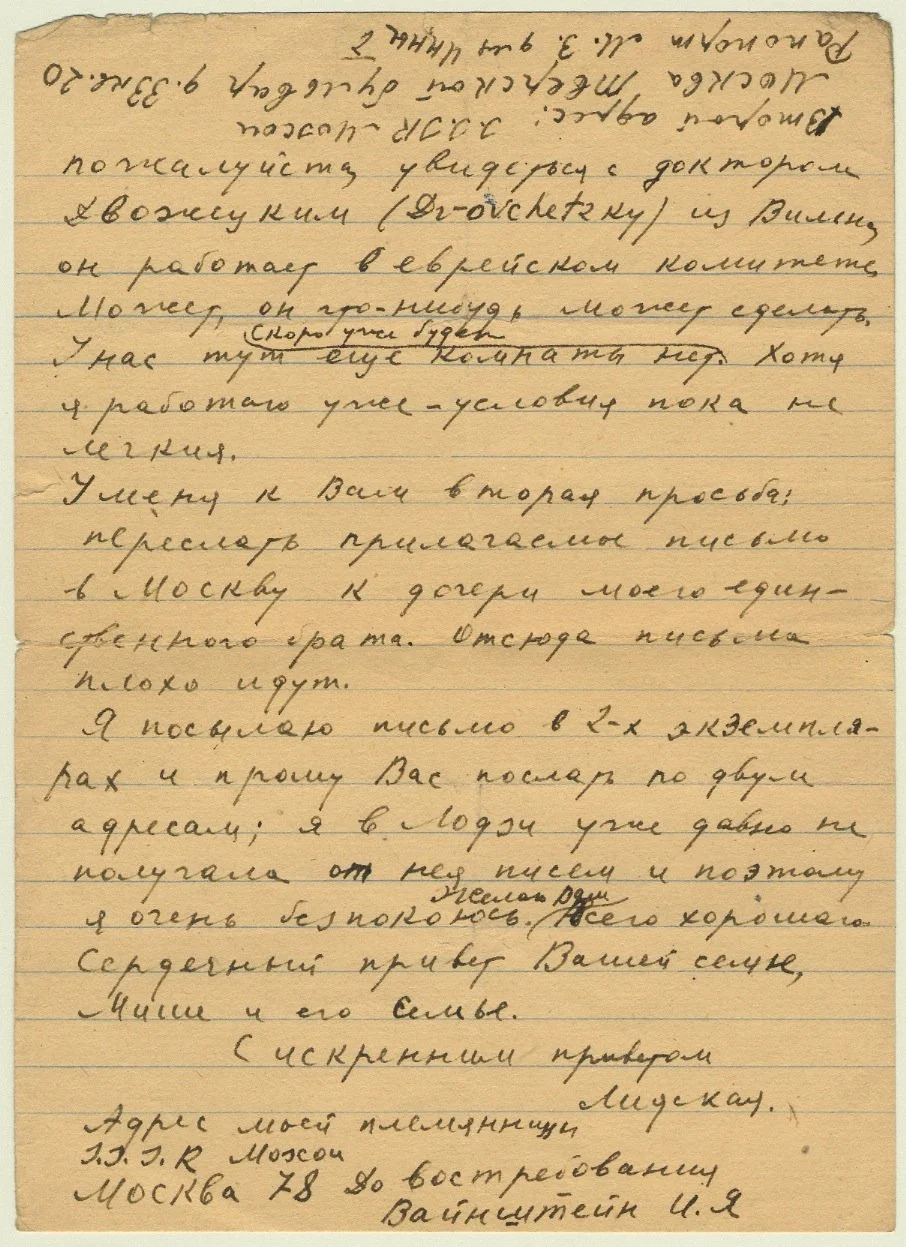 пожалуйста, увидеться с доктором
Двожецким (Dr Dvorchetzky) из Вильны,
он работает в еврейском комитете,
Может, он что-нибудь может сделать.
скоро уже будет
У нас тут еще комнаты нет. Хотя
я работаю уже - условия пока не
легкия.
У меня к Вам вторая просьба:
переслать прилагаемое письмо
в Москву к дочери моего един-
ственного брата. Отсюда письма
плохо идут.
Я посылаю письмо в 2-х экземпля-
рах и прошу Вас послать по двум
адресам; я в Лодзи уже давно не
получала от нея писем и поэтому
я очень безпокоюсь. Желаю Вам
Всего хорошаго
Сердечный привет Вашей семье,
Мише и его семье.
С искренним приветом
Лидская.
Адрес моей племянницы
S.S.S.R Москои
Москва 78 До востребования
Вайнштейн И. Я
Второй адрес: S.S.S.R Москои
Москва Тверской бульвар д. 33 кв. 20
Рапопорт М. З. для Инны